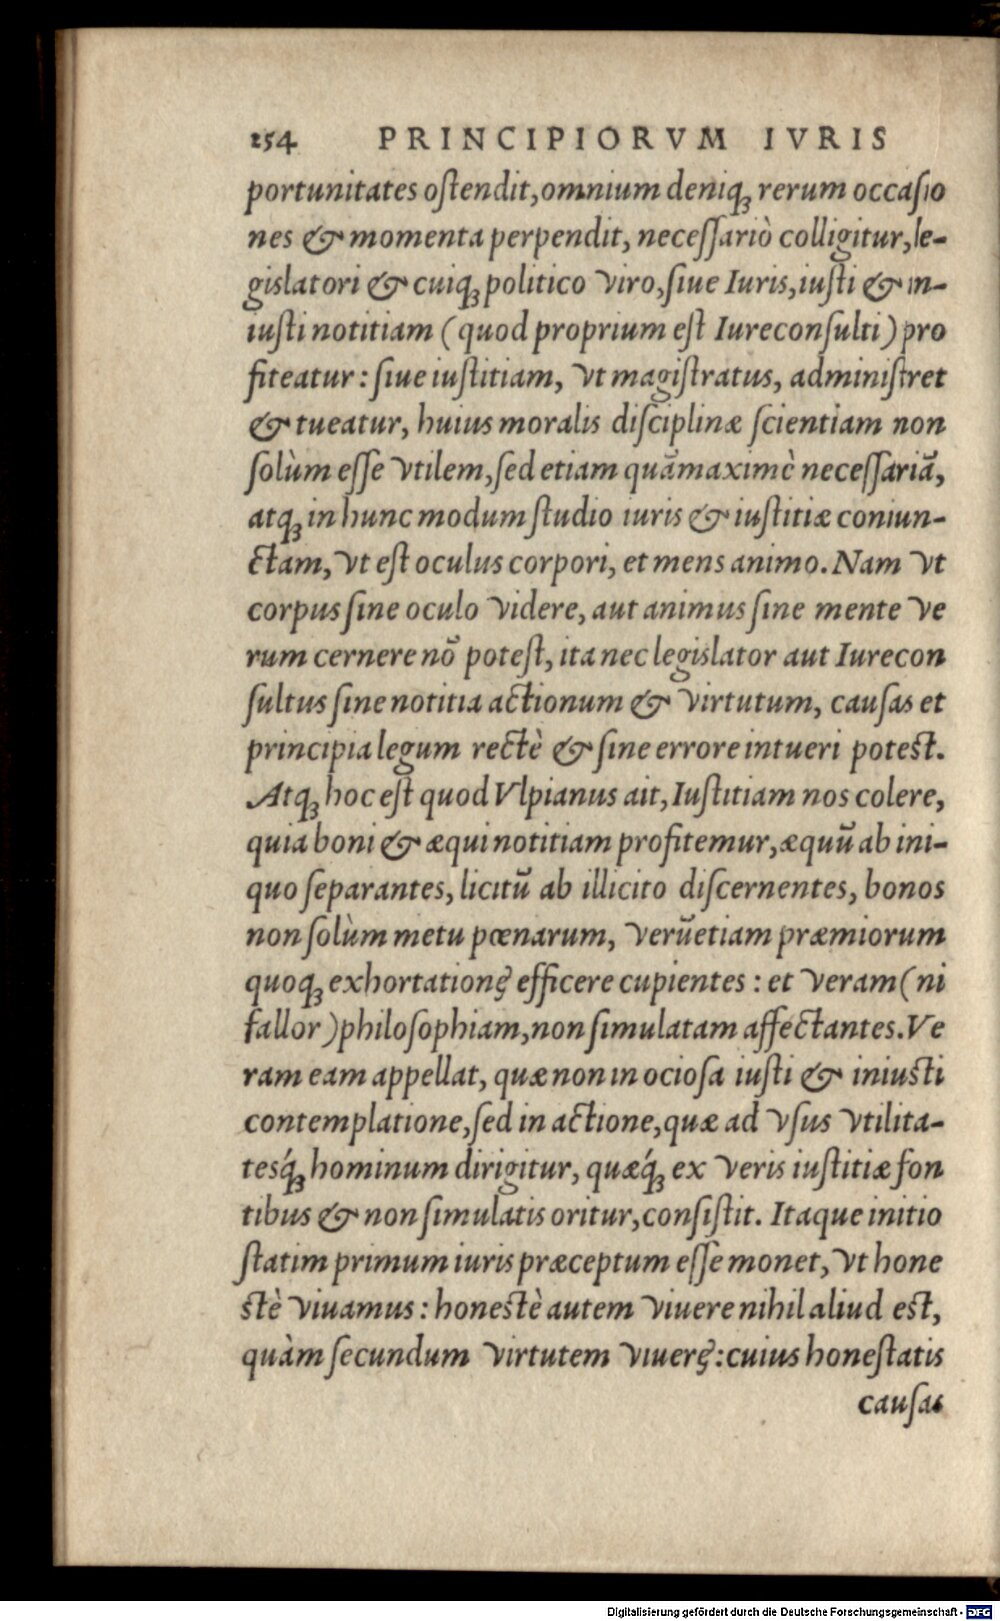 254 PRINCIPIORVM IVRIS
portunitates oſtendit, omnium deniqꝫ rerum occaſio
nes & momenta perpendit, neceſſariò colligitur, le-
gislatori & cuiqꝫ politico viro, ſiue Iuris, iuſti & in-
iuſti notitiam (quod proprium eſt Iureconſulti) pro
fiteatur: ſiue iuſtitiam, vt magiſtratus, adminiſtret
& tueatur, huius moralis diſciplinæ ſcientiam non
ſolùm eſſe vtilem, ſed etiam quāmaximè neceſſariā,
atqꝫ in hunc modum ſtudio iuris & iuſtitiæ coniun-
ctam, vt eſt oculus corpori, et mens animo. Nam vt
corpus ſine oculo videre, aut animus ſine mente ve
rum cernere nō poteſt, ita nec legislator aut Iurecon
ſultus ſine notitia actionum & virtutum, cauſas et
principia legum rectè & ſine errore intueri poteſt.
Atqꝫ hoc eſt quod Vlpianus ait, Iuſtitiam nos colere,
quia boni & æqui notitiam profitemur, æquū ab ini-
quo ſeparantes, licitū ab illicito diſcernentes, bonos
non ſolùm metu pœnarum, verūetiam præmiorum
quoqꝫ exhortationę efficere cupientes: et veram (ni
fallor) philoſophiam, non ſimulatam affectantes. Ve
ram eam appellat, quæ non in ocioſa iuſti & iniuſti
contemplatione, ſed in actione, quæ ad vſus vtilita-
tesq́ꝫ hominum dirigitur, quæq́ꝫ ex veris iuſtitiæ fon
tibus & non ſimulatis oritur, conſiſtit. Itaque initio
ſtatim primum iuris præceptum eſſe monet, vt hone
ſtè viuamus: honeſtè autem viuere nihil aliud eſt,
quàm ſecundum virtutem viuerę: cuius honeſtatis
cauſas
Digitalisierung gefördert durch die Deutsche Forschungsgemeinschaft - DFG